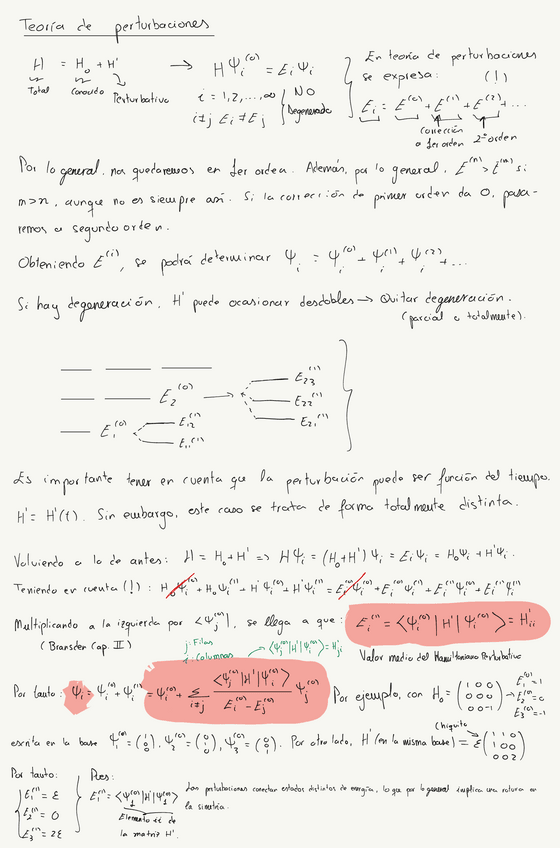 Teoría de perturbaciones
H = H₀ + H' → HΨᵢ⁽⁰⁾ = EᵢΨᵢ
Total Conocido Perturbativo
i = 1, 2, ..., ∞
i≠j Eᵢ ≠ Eⱼ
NO Degenerado
En teoría de perturbaciones
se expresa: (!)
Eᵢ = E⁽⁰⁾ + E⁽¹⁾ + E⁽²⁾ + ...
corrección a 1er orden 2º orden
Por lo general, nos quedaremos en 1er orden. Además, por lo general, E⁽ⁿ⁾ > E⁽ᵐ⁾ si
m>n, aunque no es siempre así. Si la corrección de primer orden da 0, pasa-
remos a segundo orden.
Obteniendo E⁽ⁱ⁾, se podrá determinar Ψᵢ = Ψᵢ⁽⁰⁾ + Ψᵢ⁽¹⁾ + Ψᵢ⁽²⁾ + ...
Si hay degeneración, H' puede ocasionar desdobles → Quitar degeneración.
(parcial o totalmente).
E₂⁽⁰⁾ → E₂₃⁽¹⁾
E₂₂⁽¹⁾
E₂₁⁽¹⁾
E₁⁽⁰⁾ E₁₂⁽¹⁾
E₁₁⁽¹⁾
Es importante tener en cuenta que la perturbación puede ser función del tiempo.
H' = H'(t). Sin embargo, este caso se trata de forma totalmente distinta.
Volviendo a lo de antes: H = H₀ + H' => HΨᵢ = (H₀ + H')Ψᵢ = EᵢΨᵢ = H₀Ψᵢ + H'Ψᵢ.
Teniendo en cuenta (!): H₀Ψᵢ⁽⁰⁾ + H₀Ψᵢ⁽¹⁾ + H'Ψᵢ⁽⁰⁾ + H'Ψᵢ⁽¹⁾ = Eᵢ⁽⁰⁾Ψᵢ⁽⁰⁾ + Eᵢ⁽⁰⁾Ψᵢ⁽¹⁾ + Eᵢ⁽¹⁾Ψᵢ⁽⁰⁾ + Eᵢ⁽¹⁾Ψᵢ⁽¹⁾
Multiplicando a la izquierda por <Ψᵢ⁽⁰⁾|, se llega a que: Eᵢ⁽¹⁾ = <Ψᵢ⁽⁰⁾|H'|Ψᵢ⁽⁰⁾> = H'ᵢᵢ
(Bransden Cap. II)
j: Filas
i: Columnas → <Ψⱼ⁽⁰⁾|H'|Ψᵢ⁽⁰⁾> = H'ⱼᵢ
Valor medio del Hamiltoniano Perturbativo
Por tanto: Ψᵢ = Ψᵢ⁽⁰⁾ + Ψᵢ⁽¹⁾ = Ψᵢ⁽⁰⁾ + Σ i≠j <Ψⱼ⁽⁰⁾|H'|Ψᵢ⁽⁰⁾> / Eᵢ⁽⁰⁾ - Eⱼ⁽⁰⁾ Ψⱼ⁽⁰⁾
Por ejemplo, con H₀ = (1 0 0 / 0 0 0 / 0 0 -1) → E₁⁽⁰⁾ = 1 E₂⁽⁰⁾ = 0 E₃⁽⁰⁾ = -1
(chiquito)
escrita en la base Ψ₁⁽⁰⁾ = (1 0 0), Ψ₂⁽⁰⁾ = (0 1 0), Ψ₃⁽⁰⁾ = (0 0 1). Por otro lado, H' (en la misma base) = ε(1 1 0 / 1 0 0 / 0 0 2)
Por tanto:
E₁⁽¹⁾ = ε
E₂⁽¹⁾ = 0
E₃⁽¹⁾ = 2ε
Pues:
E₁⁽¹⁾ = <Ψ₁⁽⁰⁾|H'|Ψ₁⁽⁰⁾>
Elemento ii de
la matriz H'.
Las perturbaciones conectan estados distintos de energía, lo que por lo general implica una rotura en
la simetría.